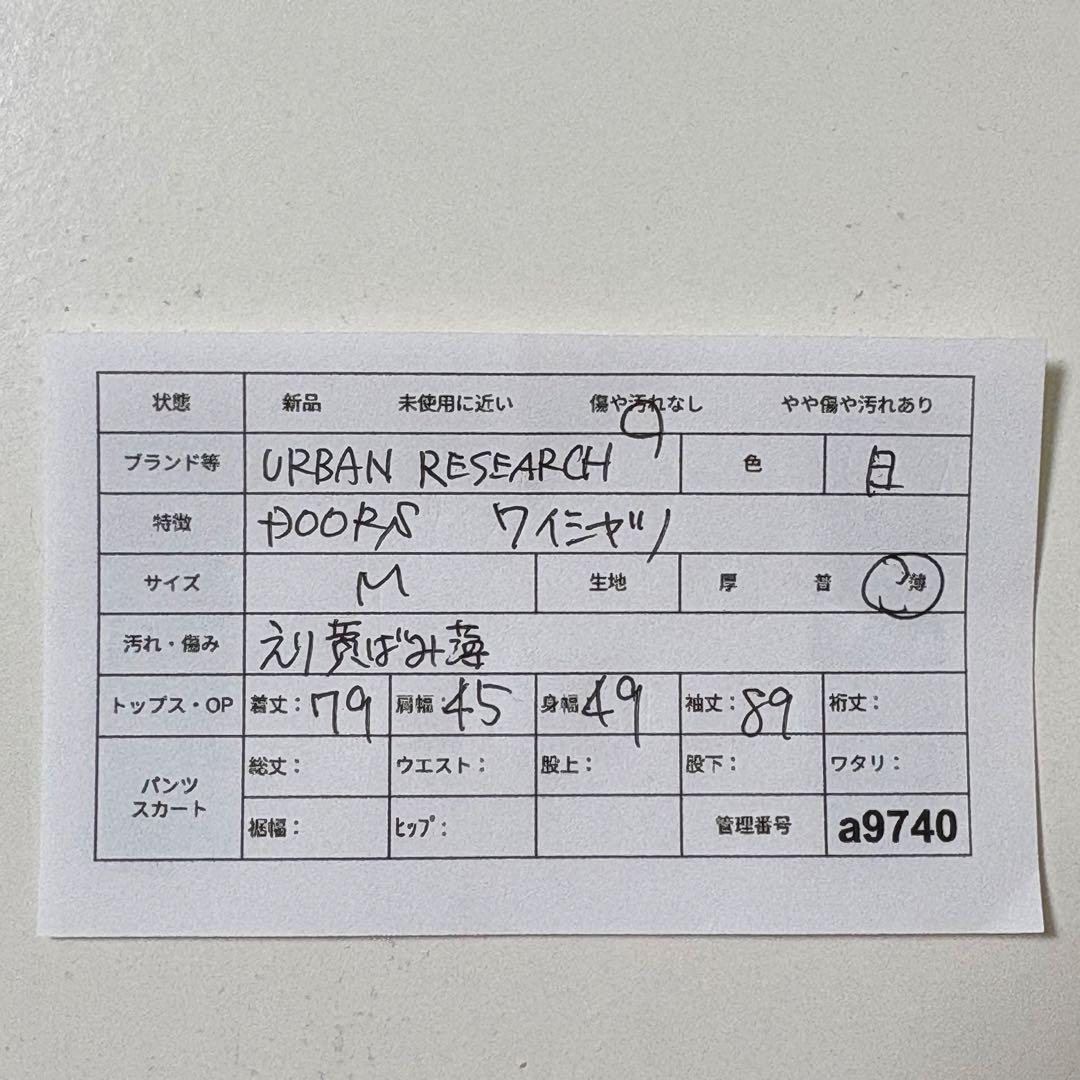 状態 新品 未使用に近い 傷や汚れなし やや傷や汚れあり
ブランド等 URBAN RESEARCH 色 白
特徴 DOORS ワイシャツ
サイズ M 生地 厚 普 薄
汚れ・傷み えり黄ばみ薄
トップス・OP 着丈:79 肩幅:45 身幅49 袖丈:89 裄丈:
パンツ スカート 総丈: ウエスト: 股上: 股下: ワタリ:
裾幅: ヒップ: 管理番号 a9740